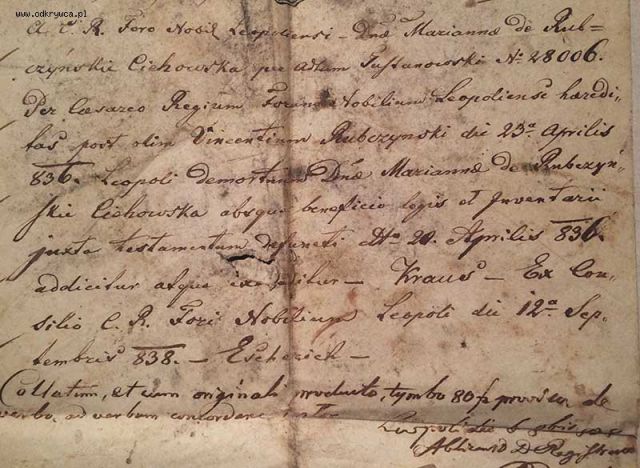 www.odkrywca.pl
A C. R. Foro Nobil. Leopoliensi – Dnæ Mariannæ de Rub-
czyńskie Cichowska per Adlum Tustanowski No 28006.
Per Cæsareo Regium Forum Nobilium Leopoliense hæredi-
tas post olim Vincentium Rubczynski die 23a Aprilis
836. Leopoli demortuum Dnæ Mariannæ de Rubczyń-
skie Cichowska absque beneficio legis et Inventarii
juxta testamentum defuncti dto 20. Aprilis 836.
addicitur atque – Kraus – Ex Con-
silio C. R. Fori Nobilium Leopoli die 12a Sep-
tembris 838. – Escherich –
Collatum, et cum originali producto, tymbo 80 de
verbo ad verbum
Leopoli die